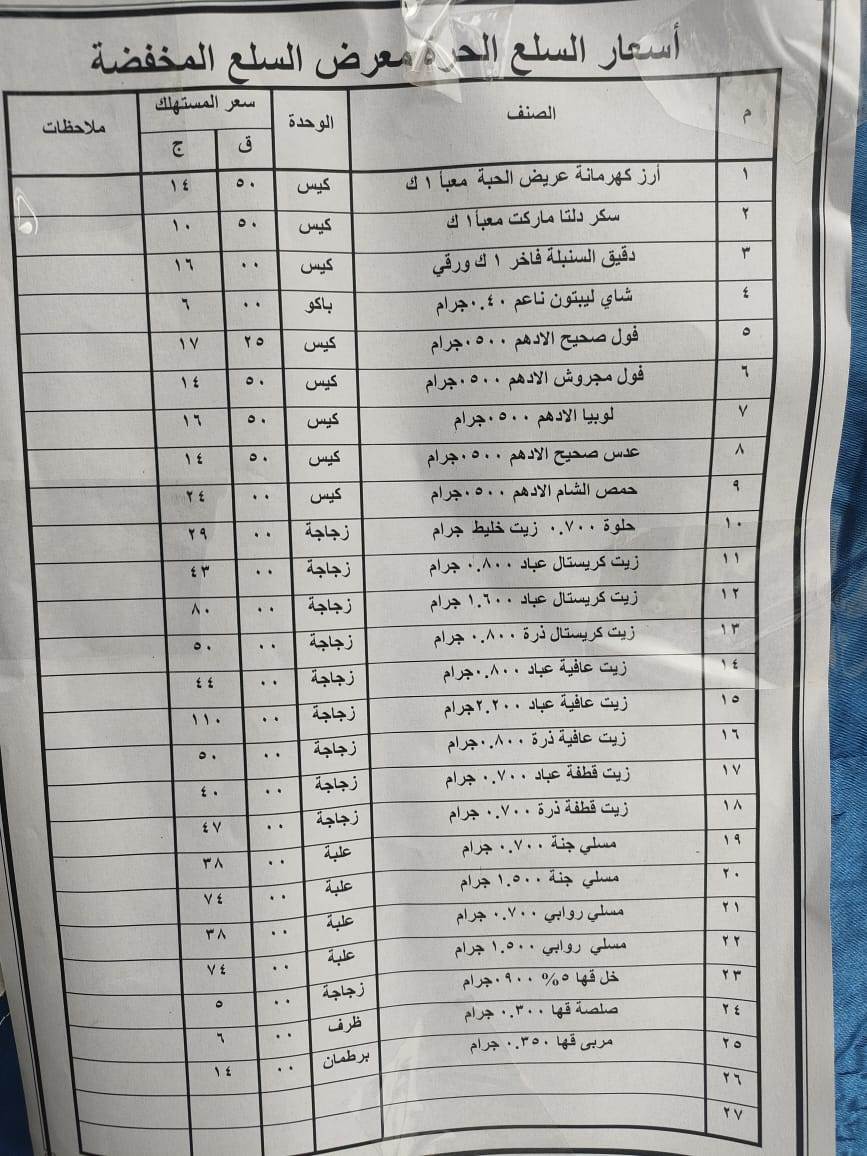 أسعار السلع الحرة معرض السلع المخفضة
م الصنف الوحدة سعر المستهلك ملاحظات
ق ج
١ أرز كهرمانة عريض الحبة معبأ ١ ك كيس ٥٠ ١٤
٢ سكر دلتا ماركت معبأ ١ ك كيس ٥٠ ١٠
٣ دقيق السنبلة فاخر ١ ك ورقي كيس ٠٠ ١٦
٤ شاي ليبتون ناعم ٠.٤٠جرام باكو ٠٠ ٦
٥ فول صحيح الادهم ٠.٥٠٠جرام كيس ٢٥ ١٧
٦ فول مجروش الادهم ٠.٥٠٠جرام كيس ٥٠ ١٤
٧ لوبيا الادهم ٠.٥٠٠جرام كيس ٥٠ ١٦
٨ عدس صحيح الادهم ٠.٥٠٠جرام كيس ٥٠ ١٤
٩ حمص الشام الادهم ٠.٥٠٠جرام كيس ٠٠ ٢٤
١٠ حلوة ٠.٧٠٠ زيت خليط جرام زجاجة ٠٠ ٢٩
١١ زيت كريستال عباد ٠.٨٠٠ جرام زجاجة ٠٠ ٤٣
١٢ زيت كريستال عباد ١.٦٠٠ جرام زجاجة ٠٠ ٨٠
١٣ زيت كريستال ذرة ٠.٨٠٠ جرام زجاجة ٠٠ ٥٠
١٤ زيت عافية عباد ٠.٨٠٠جرام زجاجة ٠٠ ٤٤
١٥ زيت عافية عباد ٢.٢٠٠جرام زجاجة ٠٠ ١١٠
١٦ زيت عافية ذرة ٠.٨٠٠جرام زجاجة ٠٠ ٥٠
١٧ زيت قطفة عباد ٠.٧٠٠ جرام زجاجة ٠٠ ٤٠
١٨ زيت قطفة ذرة ٠.٧٠٠ جرام زجاجة ٠٠ ٤٧
١٩ مسلي جنة ٠.٧٠٠ جرام علبة ٠٠ ٣٨
٢٠ مسلي جنة ١.٥٠٠ جرام علبة ٠٠ ٧٤
٢١ مسلي روابي ٠.٧٠٠ جرام علبة ٠٠ ٣٨
٢٢ مسلي روابي ١.٥٠٠ جرام علبة ٠٠ ٧٤
٢٣ خل قها ٥% ٠.٩٠٠جرام زجاجة ٠٠ ٥
٢٤ صلصة قها ٠.٣٠٠ جرام ظرف ٠٠ ٦
٢٥ مربى قها ٠.٣٥٠ جرام برطمان ٠٠ ١٤
٢٦
٢٧